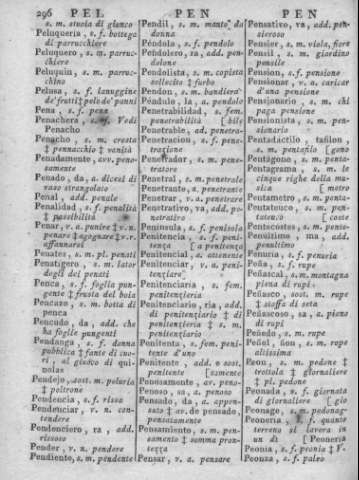 296 PEL PEN PEN
s. m. stuoia di giunco
Peluquería, s. f. bottega
di parrucchiere
Peluquero, s. m. parrucchiere
Peluquin, s. m. parrucchino
Pelusa, s. f. lanuggine
de' frutti ‡ pelo de' panni
Pena, s. f. pena
Penachera, s. f. Vedi
Penacho
Penacho, s. m. cresta
‡ pennacchio ‡ vanità
Penadamente, avv. penosamente
Penado, da, a. dicesi di
vaso strangolato
Penal, add. penale
Penalidad, s. f. penalità
‡ passibilità
Penar, v. a. punire ‡ v. n.
penare ‡ agognare ‡ v. r.
affannarsi
Penates, s. m. pl. penati
Penatigero, s. m. lator
degli dei penati
Penca, s. f. foglia pungente
‡ frusta del boia
Pencazo, s. m. botta di
penca
Pencudo, da, add. che
ha foglie pungenti
Pendanga, s. f. donna
pubblica ‡ fante di cuori,
al giuoco di quinolas
Pendejo, sost. m. peluria
‡ poltrone
Pendencia, s. f. rissa
Pendenciar, v. n. contendere
Pendenciero, ra, add.
rissoso
Pender, v. n. pendere
Pendiente, s. m. pendente
Pendil, s. m. manto da
donna
Péndola, s. f. pendolo
Péndolero, ra, add. pendolone
Pendolista, s. m. copista
sollecito ‡ furbo
Pendon, s. m. bandiera
Péndulo, la, a. pendolo
Penetrabilidad, s. fem.
penetrabilità [bile
Penetrable, ad. penetra-
Penetracion, s. f. penetrazione
Penetrador, s. m. penetratore
Penetral, s. m. penetrale
Penetrante, a. penetrante
Penetrar, v. a. penetrare
Penetrativo, va, add. penetrativo
Península, s. f. penisola
Penitencia, s. f. penitenza
[a penitenza
Penitencial, a. attenente
Penitenciar, v. a. penitenziare
Penitenciaria, s. fem.
penitenzieria
Penitenciario, ria, add.
di penitenziario ‡ di
penitenzieria ‡ s. m.
penitenziario
Penitenta, s. fem. penitente
d'uno
Penitente, add. e sost.
penitente [samente
Penosamente, av. peno-
Penoso, sa, a. penoso
Pensado, da, a. appensato
‡ av. de pensado,
pensatamente
Pensamiento, s. m. pensamento
‡ somma prontezza
Pensar, v. a. pensare
Pensativo, va, add. pensieroso
Pensier, s. m. viola, fiore
Pensil, s. m. giardino
pensile
Pension, s. f. pensione
Pensionar, v. a. caricar
d'una pensione
Pensionario, s. m. chi
paga pensione
Pensionista, s. m. pensionario
Pentadactilo, failon,
s. m. pentafilo [gono
Pentágono, s. m. penta-
Pentagrama, s. m. le
cinque righe della musica
[metro
Pentámetro, s. m. penta-
Pentateuco, s. m. pentateuco
[coste
Pentecostes, s. m. pente-
Penúltimo, ma, add.
penultimo
Penuria, s. f. penuria
Peña, s. f. rupe
Peñascal, s. m. montagna
piena di rupi
Peñasco, sost. m. rupe
‡ stoffa di seta
Peñascoso, sa, a. pieno
di rupi
Peñedo, s. m. rupe
Peñol, ñon, s. m. rupe
altissima
Peon, s. m. pedone ‡
trottola ‡ giornaliere
‡ pl. pedone
Peonada, s. f. giornata
di giornaliere [gio
Peonage, s. m. pedonag-
Peonería, s. f. quanto
terreno si lavora in
un dì [Peonería
Peonia, s. f. peonia ‡ V.
Peonza, s. f. paleo